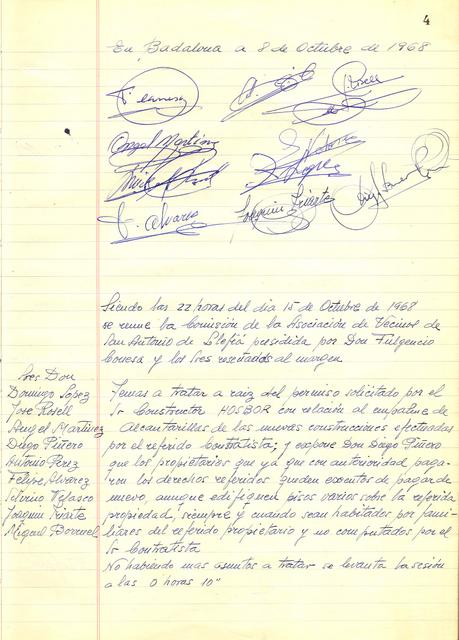 4
En Badalona a 8 de Octubre de 1968
Angel Martinez
F. Alvarez
Joaquin Iriarte
Siendo las 22 horas del dia 15 de Octubre de 1968
se reune la Comisión de la Asociación de Vecinos de
San Antonio de Llefiá presidida por Don Fulgencio
Conesa y los Sres reseñados al margen
Sres Don
Domingo López
Jose Rosell
Angel Martinez
Diego Piñero
Antonio Perez
Felipe Alvarez
Silvino Velasco
Joaquin Iriarte
Miguel Borruel
Temas a tratar a raiz del permiso solicitado por el
Sr Constructor HOSBOR con relación al empalme de
Alcantarillas de las nuevas construcciones efectuadas
por el referido Contratista; y expone Don Diego Piñero
que los propietarios que ya que con autoridad paga-
ron los derechos referidos queden exentos de pagar de
nuevo, aunque edifiquen pisos varios sobre la referida
propiedad, siempre y cuando sean habitados por fami-
liares del referido propietario y no computados por el
Sr Contratista
No habiendo mas asuntos a tratar se levanta la sesión
a las 0 horas 10"